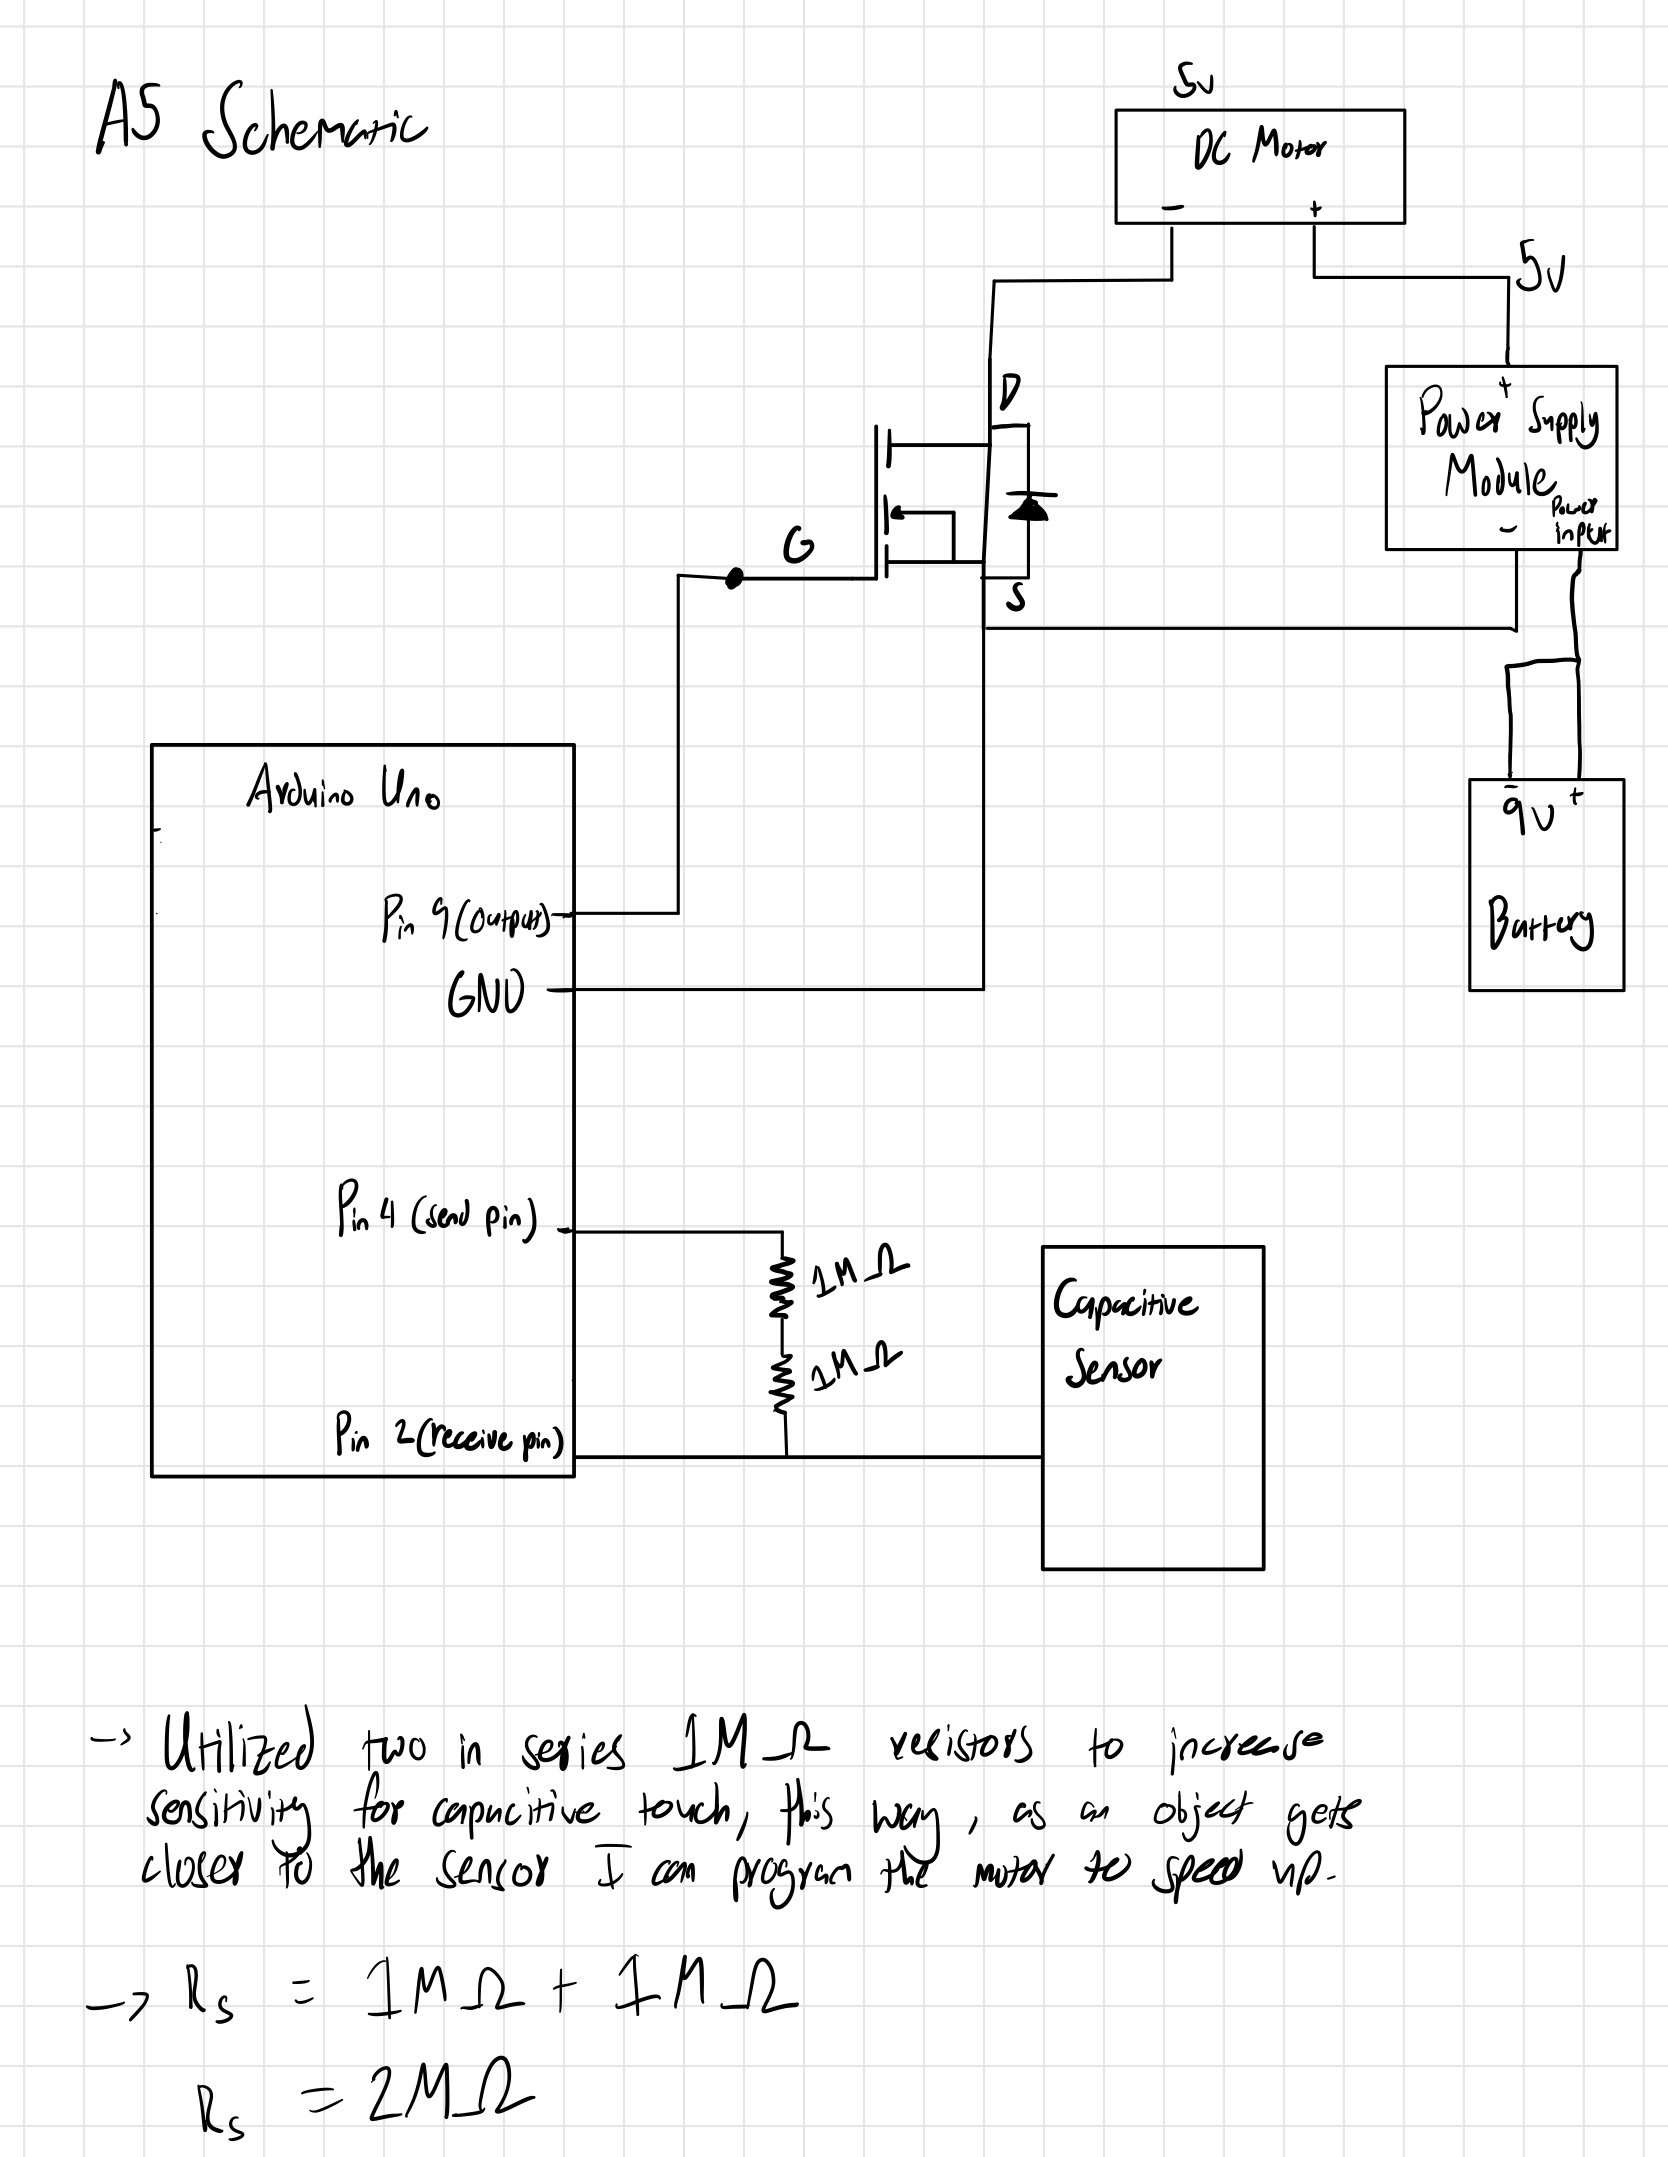 A5 Schematic
5v
DC Motor
- +
5V
D
+
Power Supply
Module
Power
input
-
G
S
Arduino Uno
- +
9v
Pin 9 (output)
Battery
GND
Pin 4 (send pin)
1MΩ
Capacitive
1MΩ
Sensor
Pin 2 (receive pin)
-> Utilized two in series 1MΩ resistors to increase
sensitivity for capacitive touch, this way, as an object gets
closer to the sensor I can program the motor to speed up.
-> Rs = 1MΩ + 1MΩ
Rs = 2MΩ